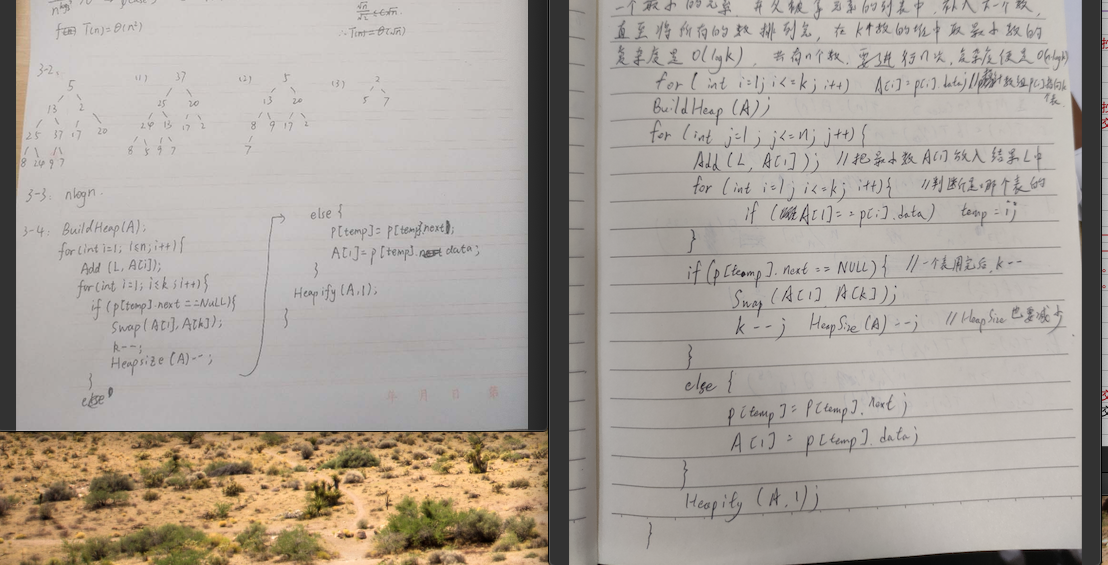 f T(n)=Θ(n²)
∴T(n)=Θ(√n)
3-2,
5
13 2
25 37 17 20
8 24 9 7
(1) 37
25 20
24 13 17 2
8 5 9 7
(2) 5
13 20
8 9 17 2
7
(3) 2
5 7
3-3: nlogn.
3-4: BuildHeap(A);
for(int i=1; i≤n; i++){
Add (L, A[i]);
for(int i=1; i≤k; i++){
if (p[temp].next ==NULL){
Swap(A[1], A[k]);
k--;
Heapsize(A)--;
}
else
else {
p[temp]= p[temp].next;
A[1]= p[temp].data;
}
Heapify(A,1);
}
一个最小的元素,并从被
直至将所有的数排列完,在k个数的堆中取最小数的
复杂度是O(lgk),共有n个数,要进行n次,复杂度便是O(nlgk)
for ( int i=1; i<=k; i++) A[i]=p[i].data; //
BuildHeap (A);
for (int j=1; j<=n; j++){
Add (L, A[1]); //把最小数A[1]放入结果L中
for (int i=1; i<=k; i++){ //判断是哪个表的
if (A[1]==p[i].data) temp=i;
}
if (p[temp].next == NULL){ //一个表用完后,k--
Swap (A[1] A[k]);
k--; HeapSize(A)--; //HeapSize也要减少
}
else {
p[temp]= p[temp].next;
A[1]= p[temp].data;
}
Heapify (A,1);
}
年 月 日 第